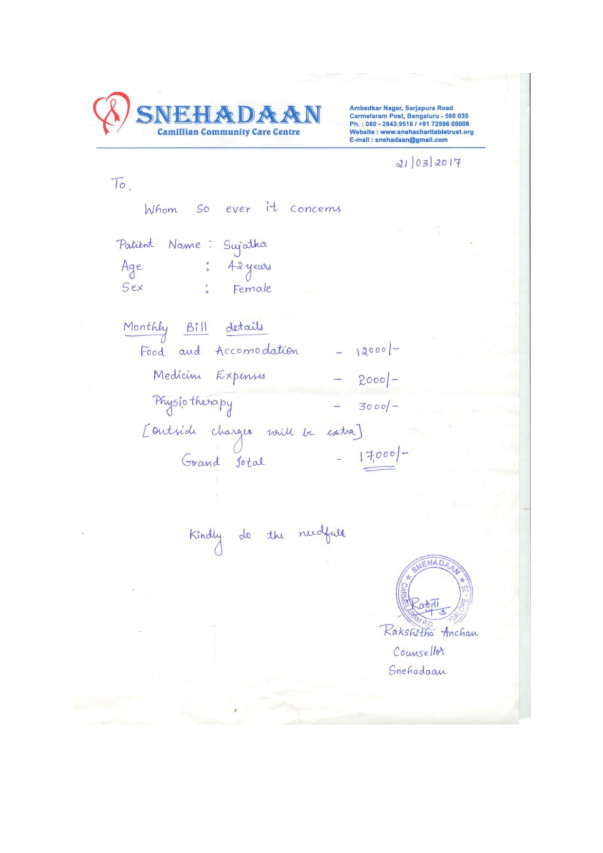 SNEHADAAN
Camillian Community Care Centre
Ambedkar Nagar, Sarjapura Road
Carmelaram Post, Bengaluru - 560 035
Ph. : 080 - 2843.9516 / +91 72596 05008
Website : www.snehacharitabletrust.org
E-mail : snehadaan@gmail.com
21/03/2017
To,
Whom so ever it concerns
Patient Name : Sujatha
Age : 42 years
Sex : Female
Monthly Bill details
Food and Accomodation - 12000/-
Medicine Expenses - 2000/-
Physiotherapy - 3000/-
[Outside charges will be extra]
Grand Total - 17,000/-
Kindly do the needfull
SNEHADAAN
Rakshitha Anchan
Counsellor
Snehadaan